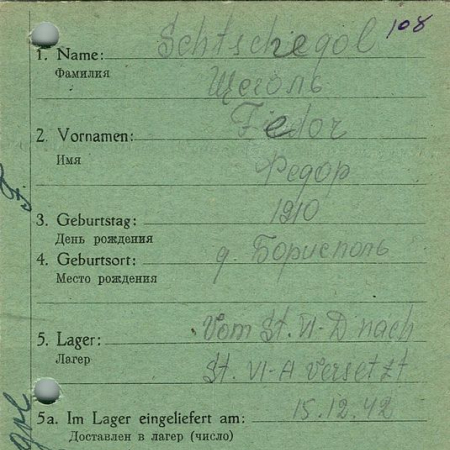 108
1. Name: Schtschegol
Фамилия
Щеголь
2. Vornamen: Fedor
Имя
Федор
3. Geburtstag: 1910
День рождения
4. Geburtsort: д. Борисполь
Место рождения
5. Lager: Vom St. VI-D nach
Лагер
St. VI-A versetzt
5a. Im Lager eingeliefert am: 15.12.42
Доставлен в лагер (число)